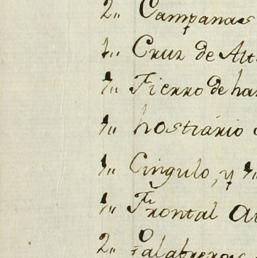 2,, Campanas
1,, Cruz de Alt
1,, Fierro de ha
1,, hostiario
1,, Cíngulo, y
1,, Frontal
2,, Palabreros